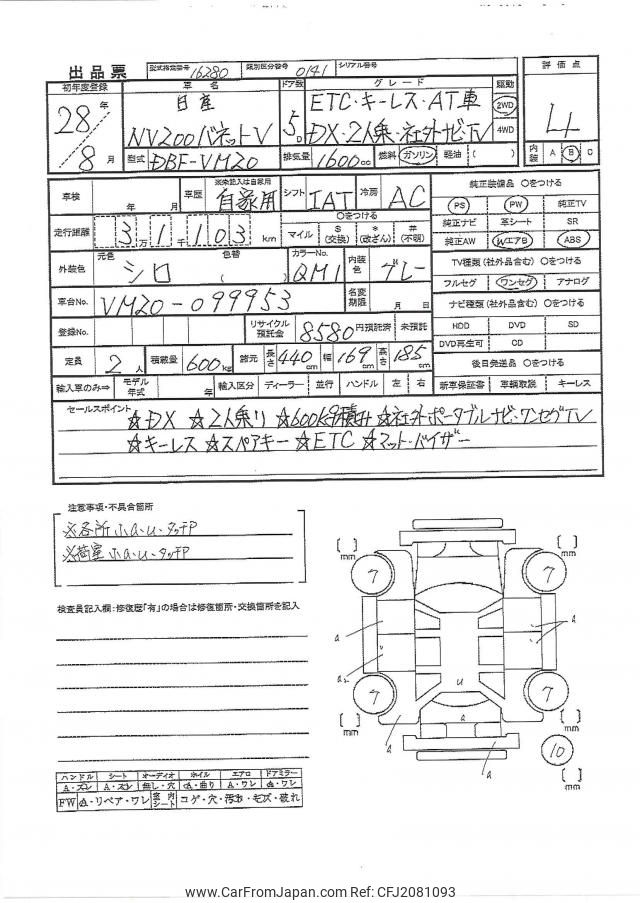 出品票 型式指定番号 16280 類別区分番号 0141 シリアル番号
初年度登録 車名 ドア数 グレード 駆動 評価点
28年 日産 5D ETC・キーレス・AT車 2WD 4
8月 NV200バネットV DX・2人乗・社外ナビTV 4WD
型式 DBF-VM20 排気量 1600cc 燃料 ガソリン 軽油 ( ) 内装 A B C
車検 年 月 車歴 ※未記入は自家用 自家用 シフト IAT 冷房 AC 純正装備品 〇をつける
PS PW 純正TV
走行距離 3万1千103km 〇をつける マイル $(交換) *(改ざん) #(不明) 純正ナビ 革シート SR
純正AW WエアB ABS
外装色 元色 シロ 色替 ( ) カラーNo. QM1 内装色 グレー TV種類(社外品含む)〇をつける
フルセグ ワンセグ アナログ
車台No. VM20-099953 名変期限 月 日 ナビ種類(社外品含む)〇をつける
登録No. リサイクル預託金 8580円預託済 未預託 HDD DVD SD
DVD再生可 CD
定員 2人 積載量 600kg 諸元 長さ 440cm 幅 169cm 高さ 185cm 後日発送品 〇をつける
輸入車のみ⇒ モデル年式 年 輸入区分 ディーラー 並行 ハンドル 左 右 新車保証書 車輌取説 キーレス
セールスポイント
☆DX ☆2人乗り ☆600kg積み ☆社外ポータブルナビ・ワンセグTV
☆キーレス ☆スペアキー ☆ETC ☆マット・バイザー
注意事項・不具合箇所
※各所小a・u・タッチP
※荷室小a・u・タッチP
検査員記入欄:修復歴「有」の場合は修復箇所・交換箇所を記入
[ ] mm 7 7 [ ] mm
a a
a u
[ ] mm 7 7 [ ] mm
a a a a
10
[ ] mm
ハンドル シート オーディオ ホイル エアロ ドアミラー
A・スレ A・スレ 無し・穴 A・曲り A・ワレ A・ワレ
FW A・リペア・ワレ 室内シート コゲ・穴・汚れ・キズ・破れ
www.CarFromJapan.com Ref: CFJ2081093